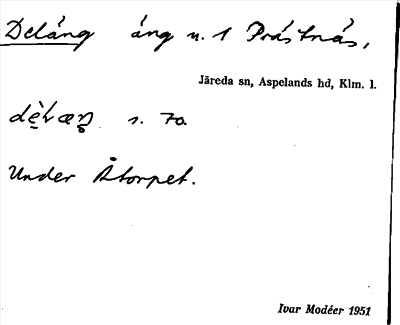 Deläng äng n. 1 Prästnäs,
Järeda sn, Aspelands hd, Klm. l.
s. 70.
Under Åtorpet.
Ivar Modéer 1951